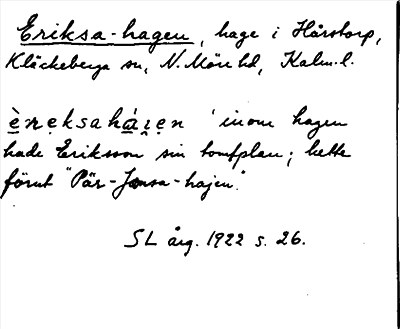 Eriksa-hagen, hage i Hårstorp,
Kläckeberga sn, N. Möre hd, Kalm. l.
ènẹksahá̱ɪ̣ẹn 'inom hagen
hade Eriksson sin tomtplan; hette
förut "Pär-Jonsa-hajen".
SL årg. 1922 s. 26.